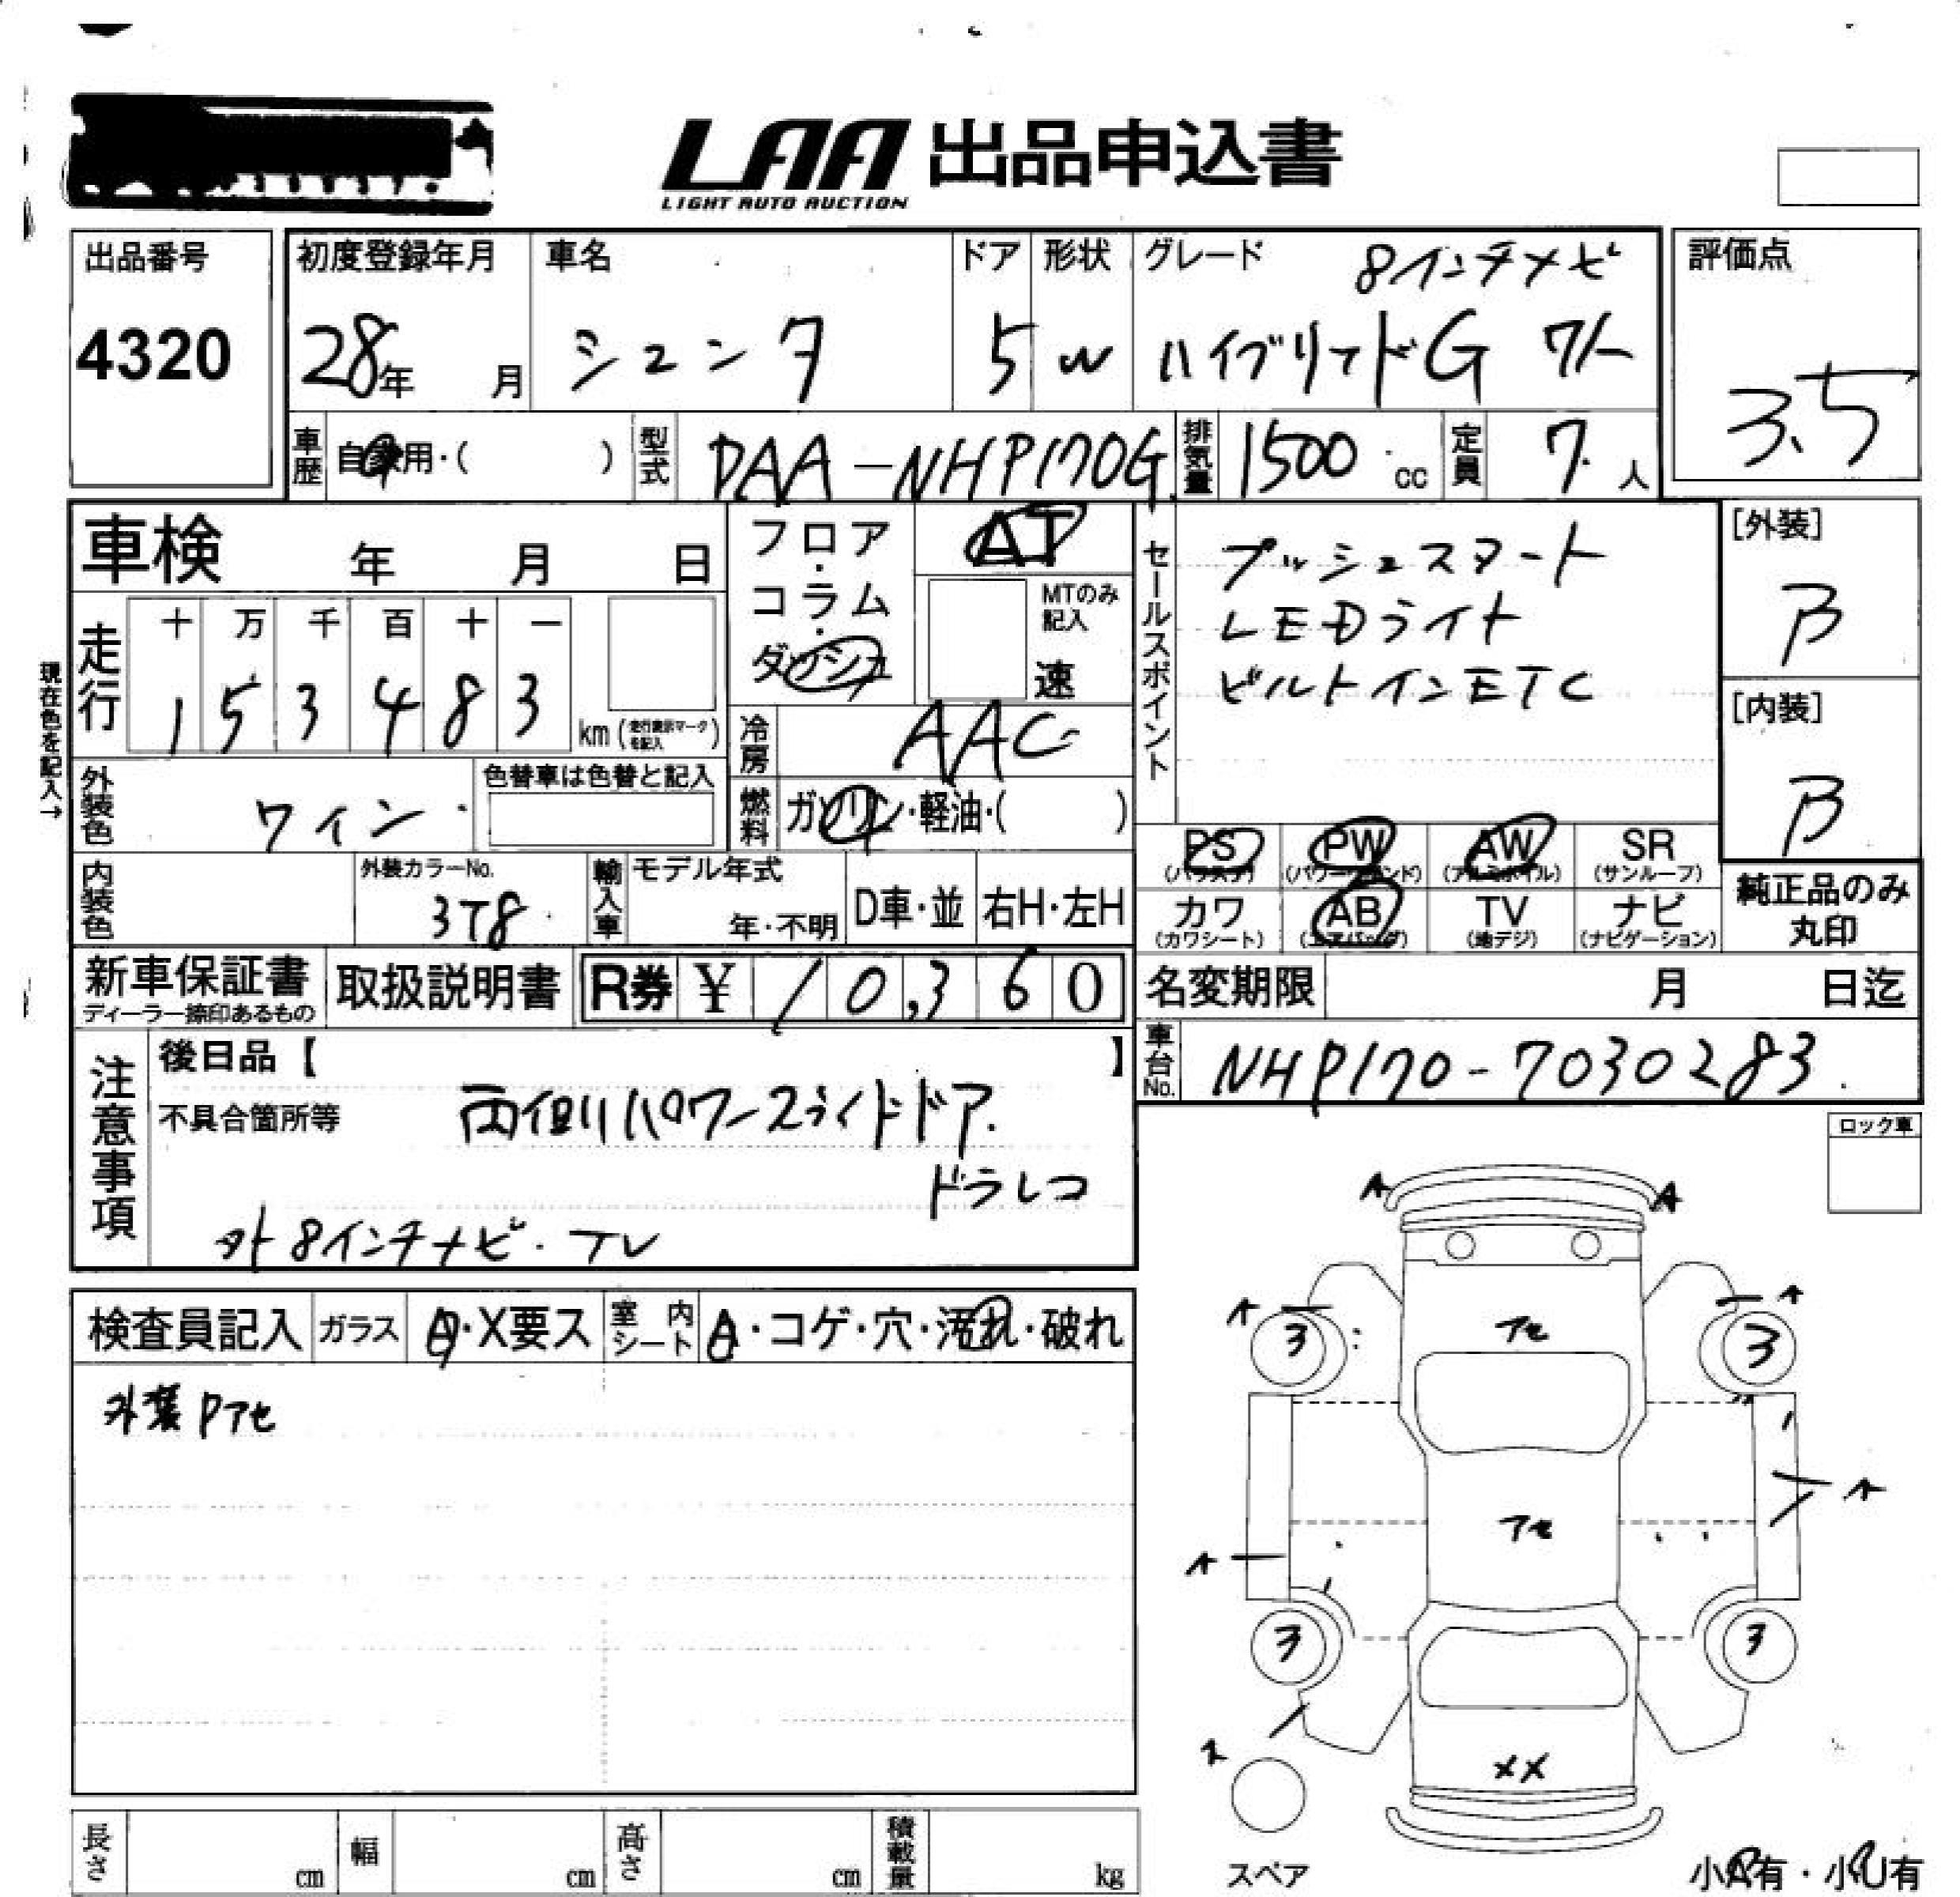 LAA 出品申込書
LIGHT AUTO AUCTION
出品番号
4320
初度登録年月
28年 月
車名
シエンタ
ドア
5
形状
W
グレード
8インチナビ
ハイブリッドG 7人
評価点
3.5
車歴
自家用・( )
型式
DAA-NHP170G
排気量
1500 cc
定員
7 人
車検 年 月 日
走行
十 万 千 百 十 一
1 5 3 4 8 3
km (走行表示マークを記入)
現在色を記入→
フロア・コラム・ダッシュ
AT
MTのみ記入
速
冷房
AAC
セールスポイント
プッシュスタート
LEDライト
ビルトインETC
[外装]
B
[内装]
B
外装色
ワイン
色替車は色替と記入
燃料
ガソリン・軽油・( )
内装色
外装カラーNo.
3T8
輸入車
モデル年式
年・不明
D車・並
右H・左H
PS
(パワステ)
PW
(パワーウインド)
AW
(アルミホイル)
SR
(サンルーフ)
カワ
(カワシート)
AB
(エアバッグ)
TV
(地デジ)
ナビ
(ナビゲーション)
純正品のみ
丸印
新車保証書
ディーラー捺印あるもの
取扱説明書
R券 ¥ 10,360
名変期限 月 日迄
車台No.
NHP170-7030283
注意事項
後日品【 】
不具合箇所等
両側パワースライドドア
ドラレコ
外8インチナビ・TV
ロック車
検査員記入
ガラス
A・X要ス
室内シート
A・コゲ・穴・汚れ・破れ
外装Pアセ
A
A
A
A
3
3
アセ
アセ
A
A
3
3
A
XX
スペア
小A有・小U有
長さ cm
幅 cm
高さ cm
積載量 kg